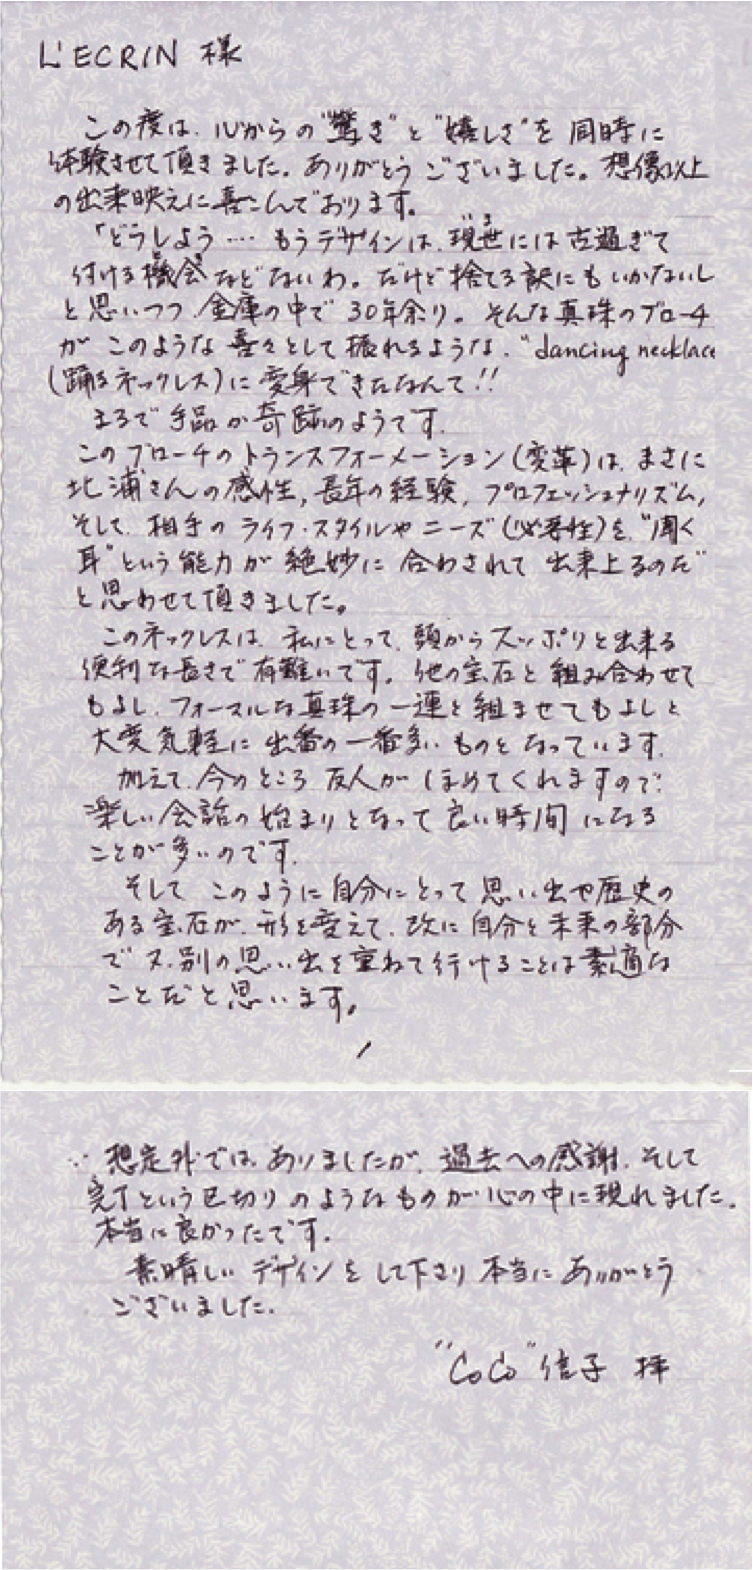 L'ECRIN 様
この度は、心からの"驚き"と"嬉しさ"を同時に
体験させて頂きました。ありがとうございました。想像以上
の出来映えに喜こんでおります。
「どうしよう…もうデザインは、現世には古過ぎて
付ける機会などないわ。だけど捨てる訳にもいかないし
と思いつつ、金庫の中で30年余り。そんな真珠のブローチ
がこのような喜々として振れるような、"dancing necklace
(踊るネックレス)に変身できたなんて!!
まるで手品か奇跡のようです。
このブローチのトランスフォーメーション(変革)は、まさに
北浦さんの感性,長年の経験,プロフェッショナリズム,
そして、相手のライフ・スタイルやニーズ(必要性)を、"聞く
耳"という能力が絶妙に合わされて出来上るのだ
と思わせて頂きました。
このネックレスは、私にとって、頭からスッポリと出来る
便利な長さで有難いです。他の宝石と組み合わせて
もよし、フォーマルな真珠の一連と組ませてもよしと
大変気軽に出番の一番多いものとなっています。
加えて、今のところ友人がほめてくれますので、
楽しい会話の始まりとなって良い時間になる
ことが多いのです。
そしてこのように自分にとって思い出や歴史の
ある宝石が、形を変えて、改に自分と未来の部分
で又、別の思い出を重ねて行けることは素適な
ことだと思います。
想定外では、ありましたが、過去への感謝、そして
完了という区切りのようなものが心の中に現れました。
本当に良かったです。
素晴しいデザインをして下さり本当にありがとう
ございました。
"CoCo"信子 拝